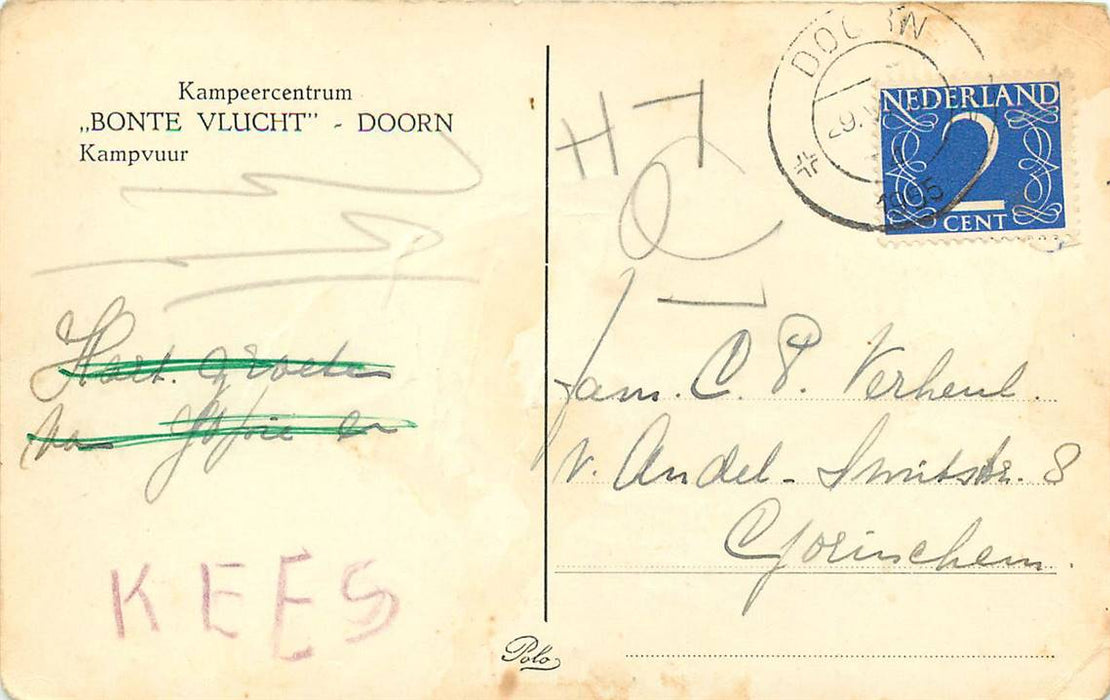 Kampeercentrum
„BONTE VLUCHT” - DOORN
Kampvuur
Hart. groeten
van en
KEES
Polo
H
DOORN
29.
1955
NEDERLAND
2
CENT
Fam. C. P. Verheul.
v. Andel-Smitstr. 8
Gorinchem.